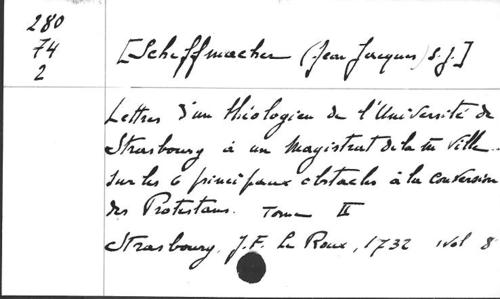 280
74
2
[Scheffmacher (Jean Jacques) S.J.]
Lettres d'un théologien de l'Université de
Strasbourg à un Magistrat de la m̂ ville
sur les 6 principaux obstacles à la conversion
des Protestans. Tome II
Strasbourg, J.F. Le Roux, 1732 1 vol 8